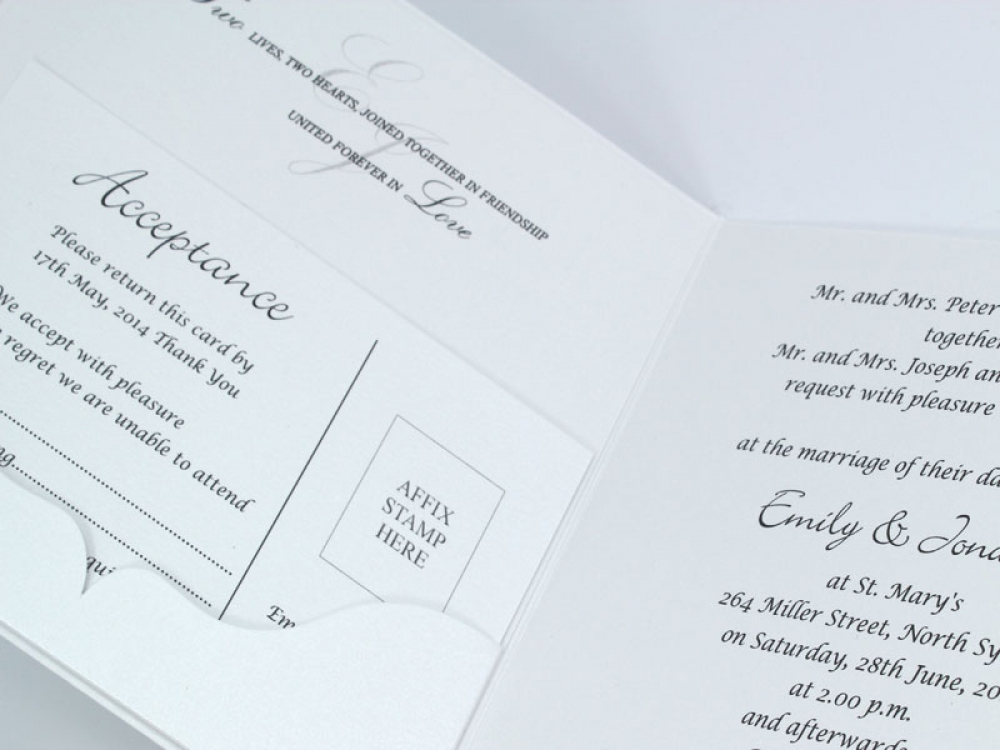 Two LIVES, TWO HEARTS, JOINED TOGETHER IN FRIENDSHIP
UNITED FOREVER IN Love
E
J
Acceptance
Please return this card by
17th May, 2014 Thank You
We accept with pleasure
regret we are unable to attend
AFFIX
STAMP
HERE
Em
Mr. and Mrs. Peter
together
Mr. and Mrs. Joseph an
request with pleasure
at the marriage of their da
Emily & Jona
at St. Mary's
264 Miller Street, North Sy
on Saturday, 28th June, 20
at 2.00 p.m.
and afterward